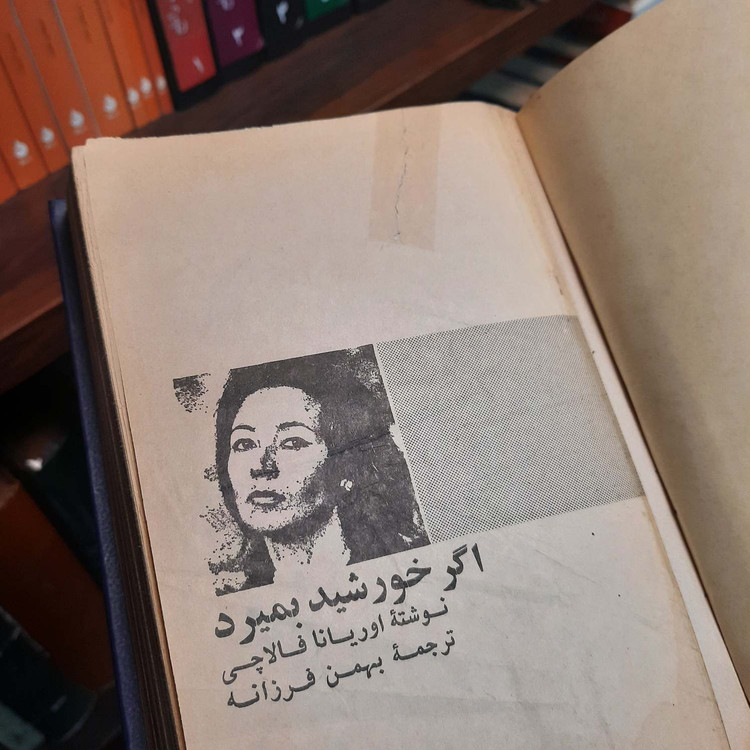 ۱
۳
۳
اگر خورشید بمیرد
نوشتهٔ اوریانا فالاچی
ترجمهٔ بهمن فرزانه